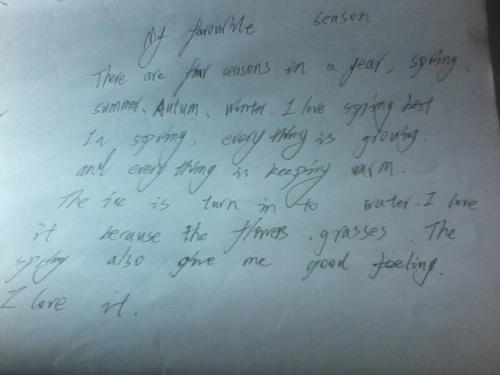 My favourite season.
There are four seasons in a year, spring,
summer, Autum, winter. I love spring best
In spring, everything is growing.
and everything is keeping warm.
The ice is turn in to water. I love
it because the flowers, grasses. The
spring also give me good feeling.
I love it.